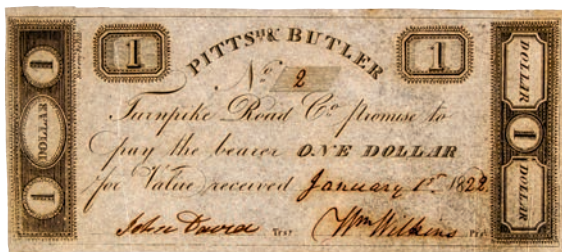 1 PITTSH & BUTLER 1
No 2
Turnpike Road Co. promise to
pay the bearer ONE DOLLAR
for Value received January 1st 1822
John David Trsr Wm Wilkins Prst
1 DOLLAR 1
DOLLAR 1 DOLLAR